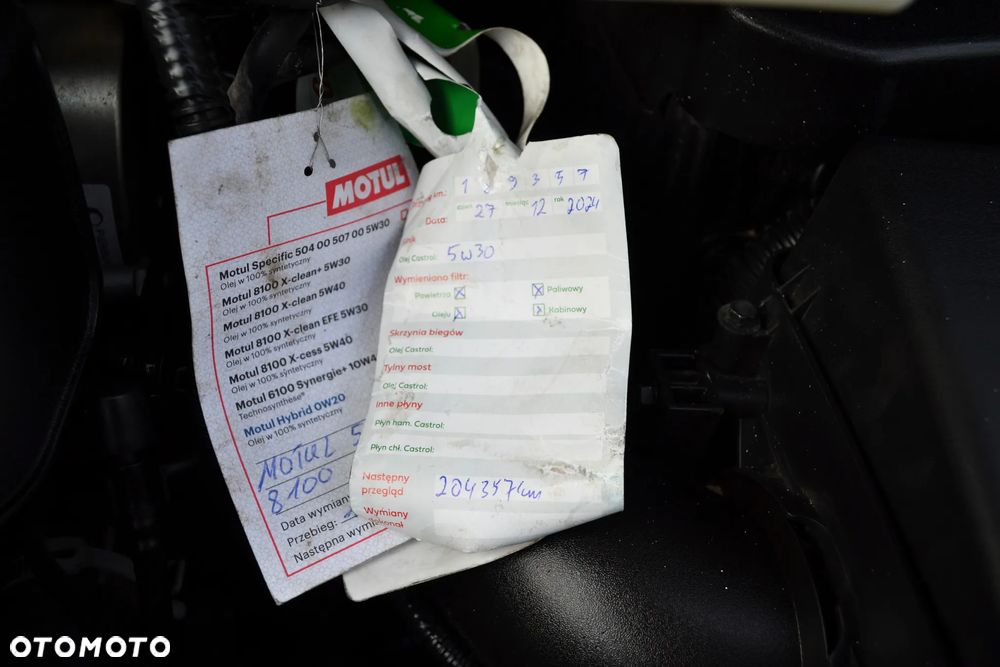 MOTUL
Motul Specific 504 00 507 00 5W30
Olej w 100% syntetyczny
Motul 8100 X-clean+ 5W30
Olej w 100% syntetyczny
Motul 8100 X-clean 5W40
Olej w 100% syntetyczny
Motul 8100 X-clean EFE 5W30
Olej w 100% syntetyczny
Motul 8100 X-cess 5W40
Olej w 100% syntetyczny
Motul 6100 Synergie+ 10W4
Technosynthese®
Motul Hybrid 0W20
Olej w 100% syntetyczny
MOTUL 5
8100
Data wymian
Przebieg:
Następna wymi
km.: 1 8 9 3 5 7
dzień miesiąc rok
Data: 27 12 2024
Olej Castrol: 5w30
Wymieniono filtr:
Powietrza Paliwowy
Oleju Kabinowy
Skrzynia biegów
Olej Castrol:
Tylny most
Olej Castrol:
Inne płyny
Płyn ham. Castrol:
Płyn chł. Castrol:
Następny
przegląd 204357km
Wymiany
OTOMOTO